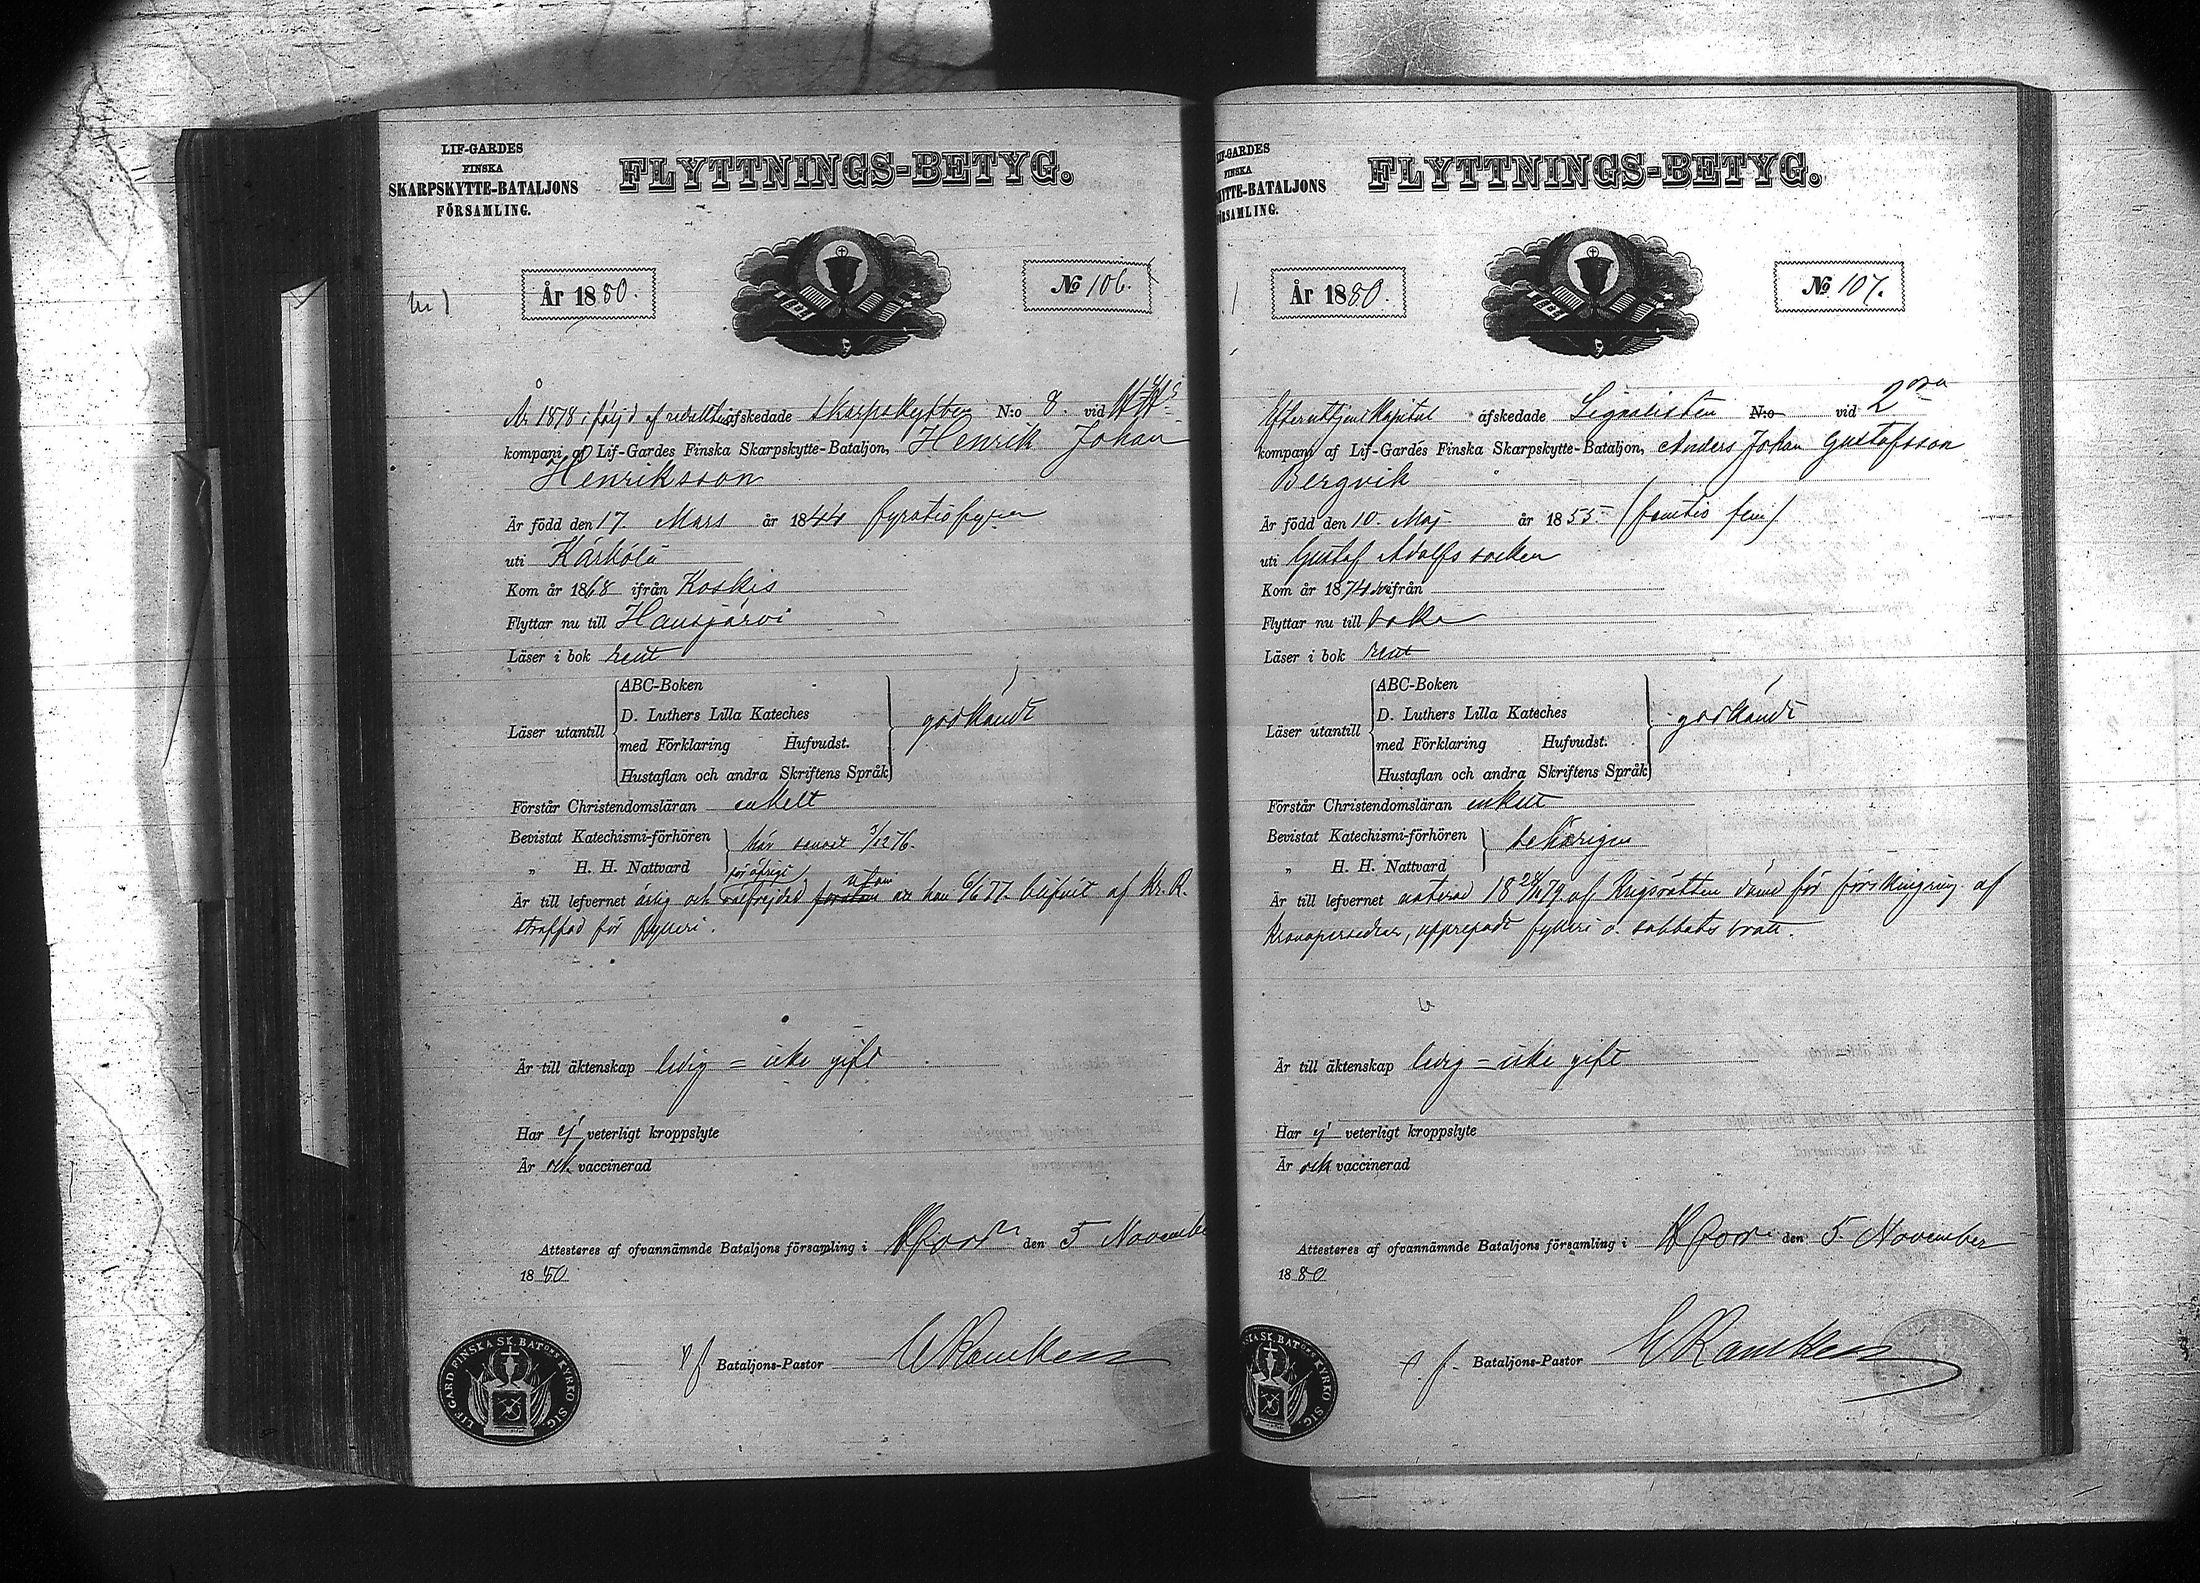 LIF-GARDES
FINSKA
SKARPSKYTTE-BATALJONS
FÖRSAMLING.
FLYTTNINGS-BETYG.
År 1880.
№ 106.
År 1878 i följd af afskedade skarpskytten N:o 8. vid
kompani af Lif-Gardes Finska Skarpskytte-Bataljon, Henrik Johan
Henriksson
Är född den 17. Mars år 1844 fyratiofyra
uti Kärkölä
Kom år 1868 ifrån Koskis
Flyttar nu till Hausjärvi
Läser i bok rent
Läser utantill
ABC-Boken
D. Luthers Lilla Kateches
med Förklaring Hufvudst.
Hustaflan och andra Skriftens Språk
godkändt
Förstår Christendomsläran enkelt
Bevistat Katechismi-förhören
„ H. H. Nattvard
här senast 3/12 76.
för öfrigt
utom
Är till lefvernet ärlig och välfrejdad att han 6/6 77 blifvit af Kr. R.
straffad för fylleri.
Är till äktenskap ledig = icke gift
Har ej veterligt kroppslyte
Är ock vaccinerad
Attesteres af ofvannämnde Bataljons församling i Hfors den 5 November
1880
v f Bataljons-Pastor
LIF. GARD. FINSKA SK. BAT:ONS KYRKO SIG.
LIF-GARDES
FINSKA
KYTTE-BATALJONS
FÖRSAMLING.
FLYTTNINGS-BETYG.
År 1880.
№ 107.
afskedade Signalisten N:o vid 2dra
kompani af Lif-Gardes Finska Skarpskytte-Bataljon, Anders Johan Gustafsson
Bergvik
Är född den 10. Maj år 1855 (femtio fem)
uti Gustaf Adolfs socken
Kom år 1874 ifrån
Flyttar nu till
Läser i bok rent
Läser utantill
ABC-Boken
D. Luthers Lilla Kateches
med Förklaring Hufvudst.
Hustaflan och andra Skriftens Språk
godkändt
Förstår Christendomsläran enkelt
Bevistat Katechismi-förhören
„ H. H. Nattvard
behörigen
Är till lefvernet af Krigsrätten dömd för förskingring af
Kronopersedlar, upprepadt fylleri o. sabbatsbrott.
Är till äktenskap ledig = icke gift
Har ej veterligt kroppslyte
Är ock vaccinerad
Attesteres af ofvannämnde Bataljons församling i Hfors den 5. November
1880
v. f. Bataljons-Pastor
SKA SK. BAT:ONS KYRKO SIG.